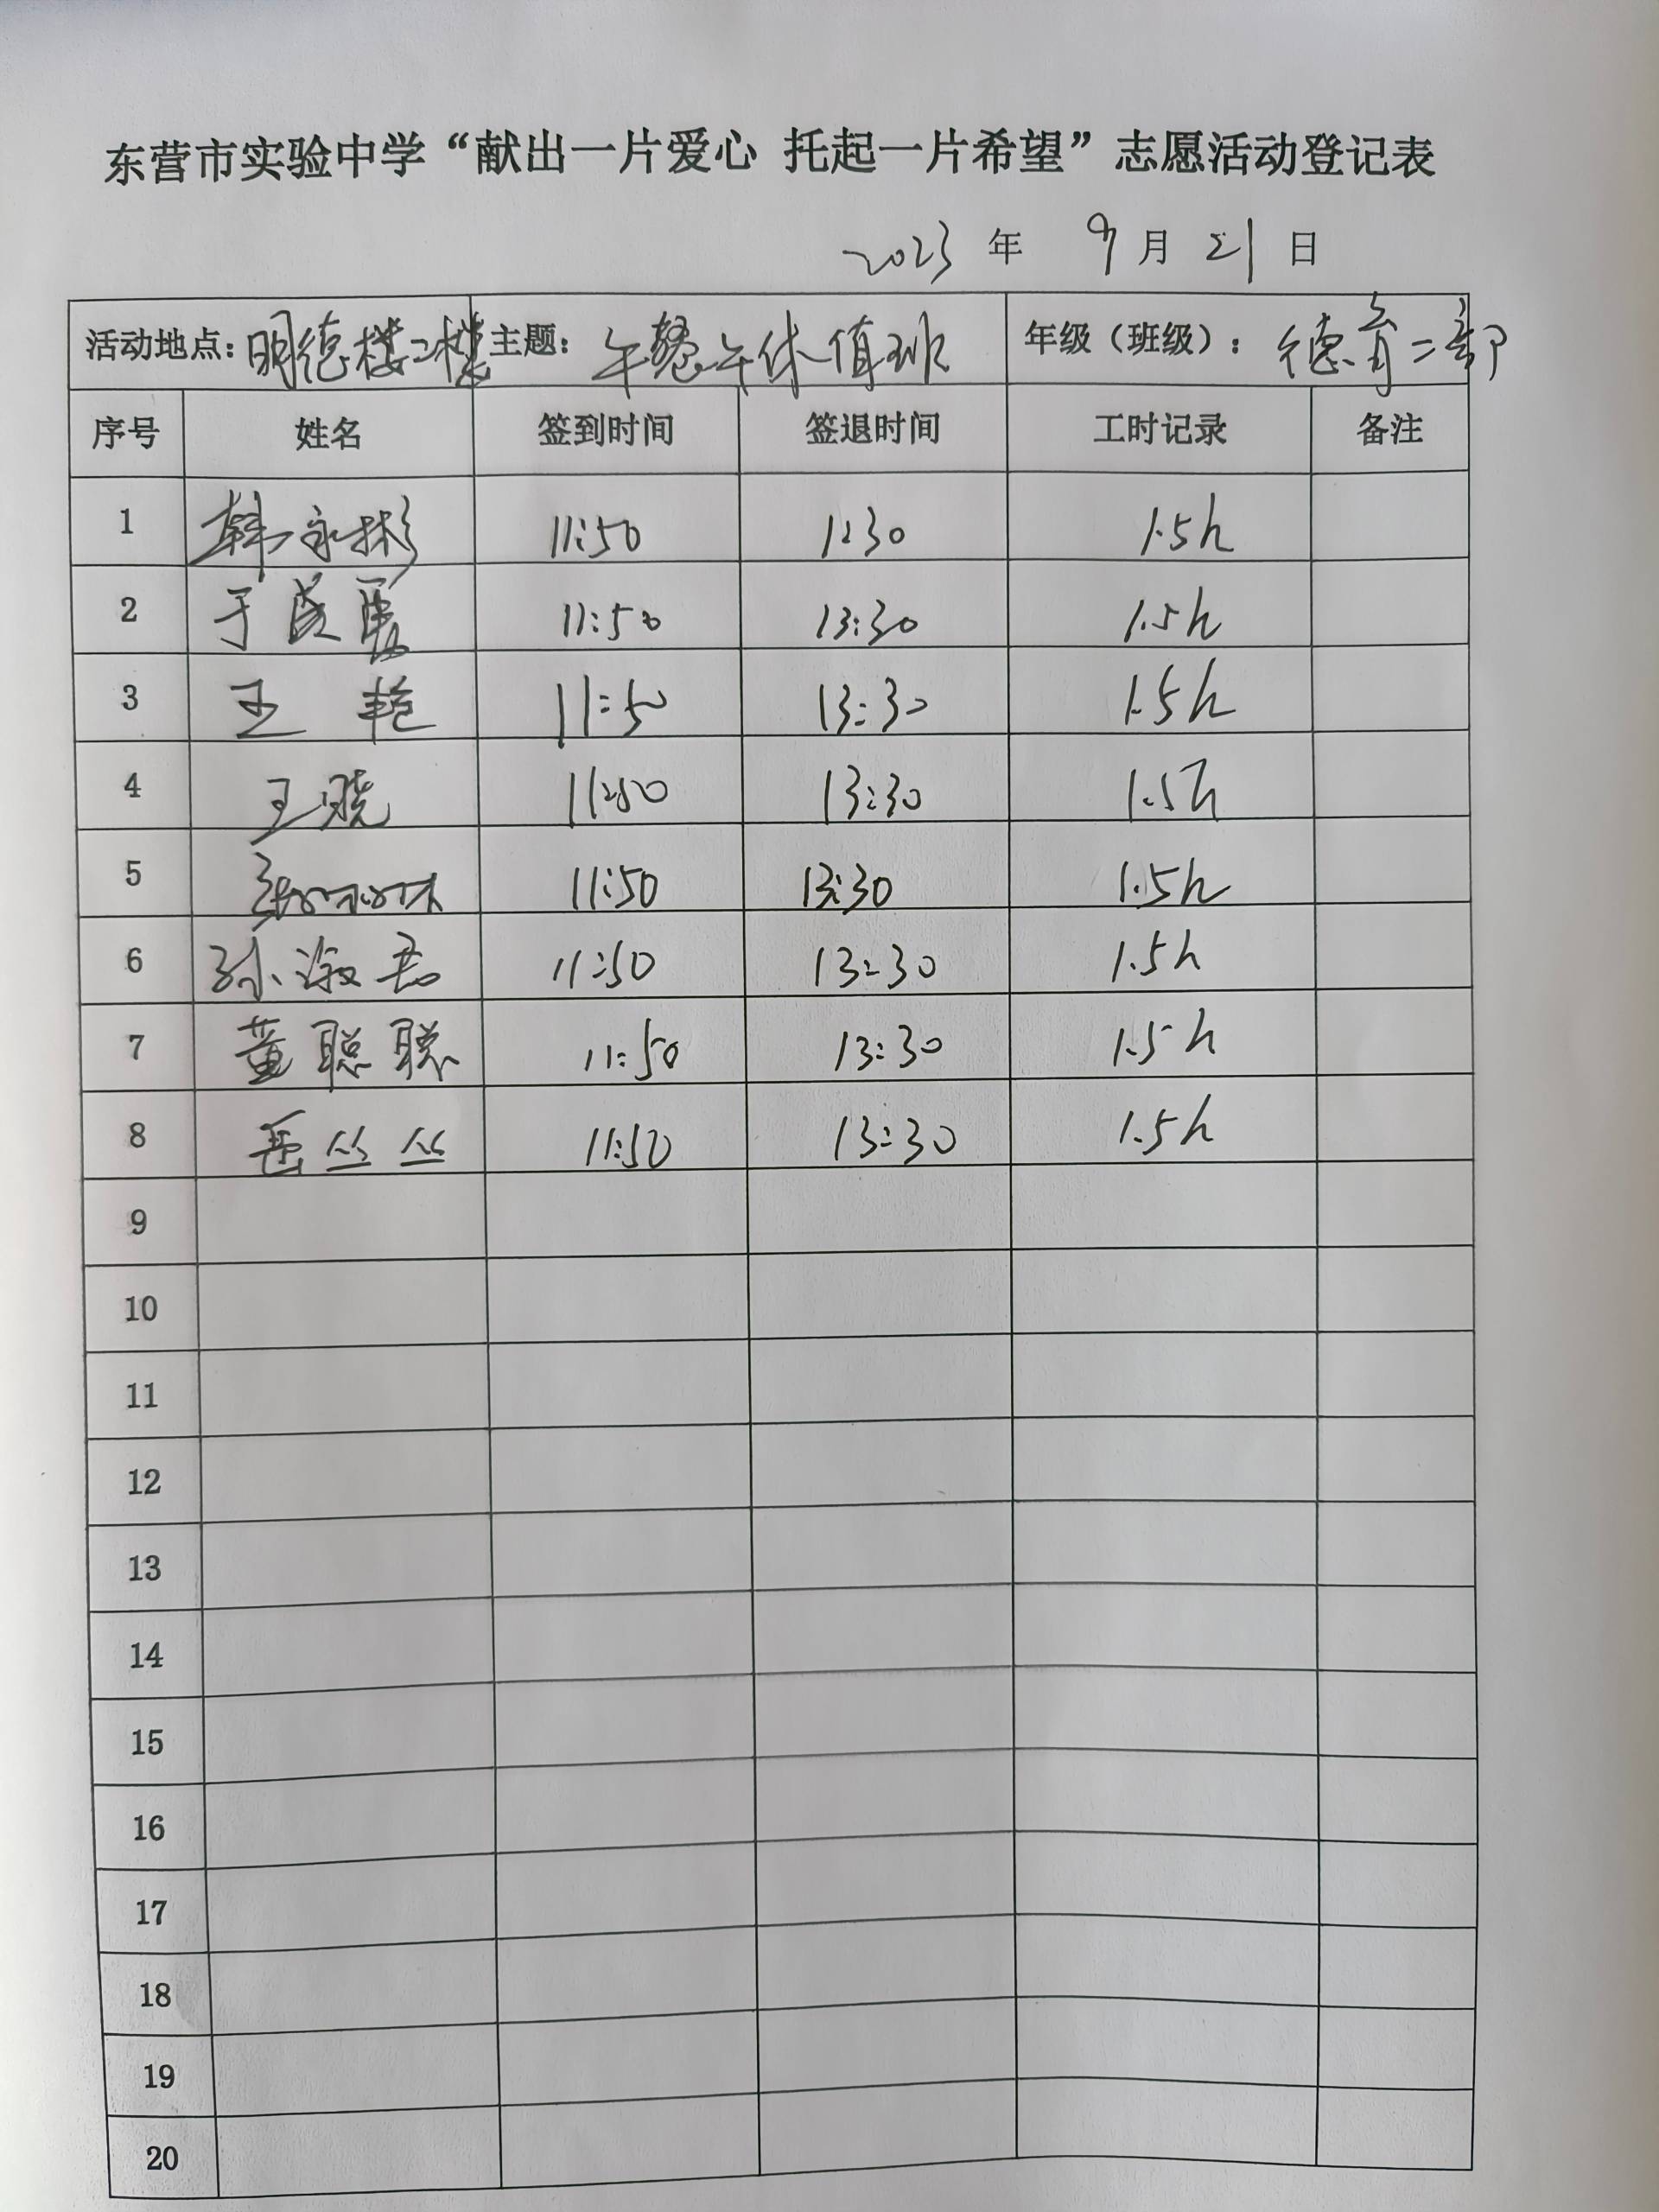 东营市实验中学“献出一片爱心 托起一片希望”志愿活动登记表
2023 年 9 月 21 日
活动地点：明德楼二楼 主题：午餐午休值班 年级（班级）：德育二部
序号 姓名 签到时间 签退时间 工时记录 备注
1 韩永彬 11:50 1:30 1.5h
2 于 11:50 13:30 1.5h
3 王艳 11:50 13:30 1.5h
4 王晓 11:50 13:30 1.5h
5 11:50 13:30 1.5h
6 孙淑君 11:50 13:30 1.5h
7 董聪聪 11:50 13:30 1.5h
8 岳丛丛 11:50 13:30 1.5h
9
10
11
12
13
14
15
16
17
18
19
20